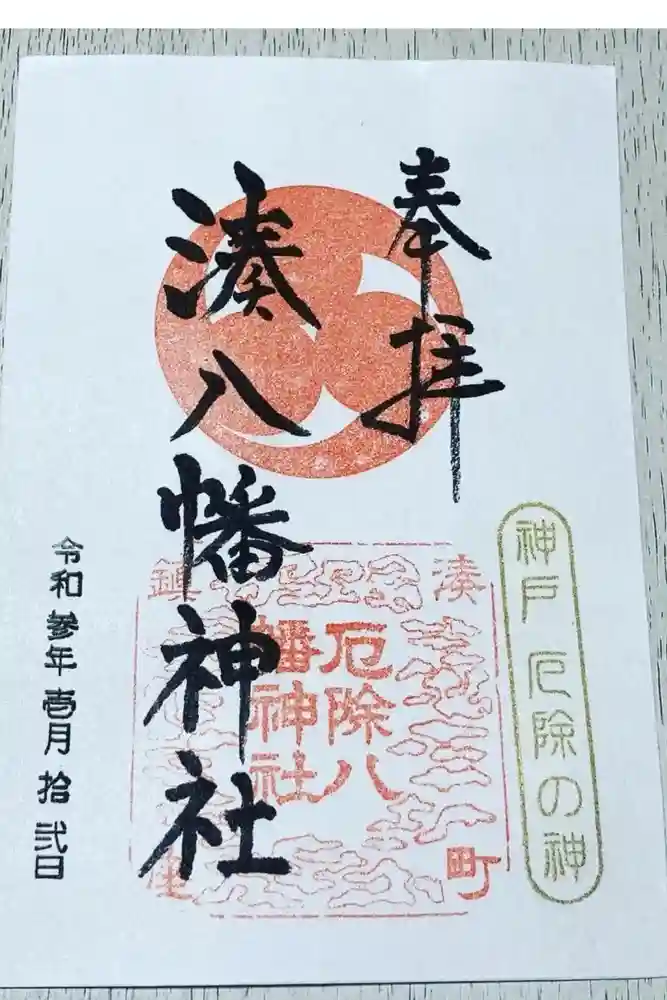 奉拝
神戸 厄除の神
湊八幡神社
湊町鎮座
厄除八
幡神社
令和参年壱月拾弐日